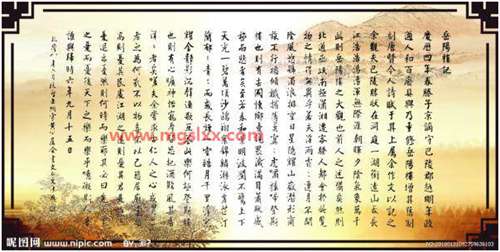 岳陽樓記
慶曆四年春滕子京謫守巴陵郡越明年政
通人和百廢具興乃重修岳陽樓增其舊制
刻唐賢今人詩賦于其上屬余作文以記之
余觀夫巴陵勝狀在洞庭一湖銜遠山吞長
江浩浩湯湯橫無際涯朝暉夕陰氣象萬千
此則岳陽樓之大觀也前人之述備矣然則
北通巫峽南極瀟湘遷客騷人多會於此覽
物之情得無異乎若夫霪雨霏霏連月不開
陰風怒號濁浪排空日星隱耀山岳潛形商
旅不行檣傾楫摧薄暮冥冥虎嘯猿啼登斯
樓也則有去國懷鄉憂讒畏譏滿目蕭然感
極而悲者矣至若春和景明波瀾不驚上下
天光一碧萬頃沙鷗翔集錦鱗游泳岸芷汀
蘭郁郁青青而或長煙一空皓月千里浮光
耀金靜影沉璧漁歌互答此樂何極登斯樓
也則有心曠神怡寵辱偕忘把酒臨風其喜洋
洋者矣嗟夫余嘗求古仁人之心或異二
者之為何哉不以物喜不以己悲居廟堂之
高則憂其民處江湖之遠則憂其君是進亦
憂退亦憂然則何時而樂耶其必曰先天下
之憂而憂後天下之樂而樂乎噫微斯人吾
誰與歸時六年九月十五日
www.mgslxx.com
昵图网
www.nipic.com